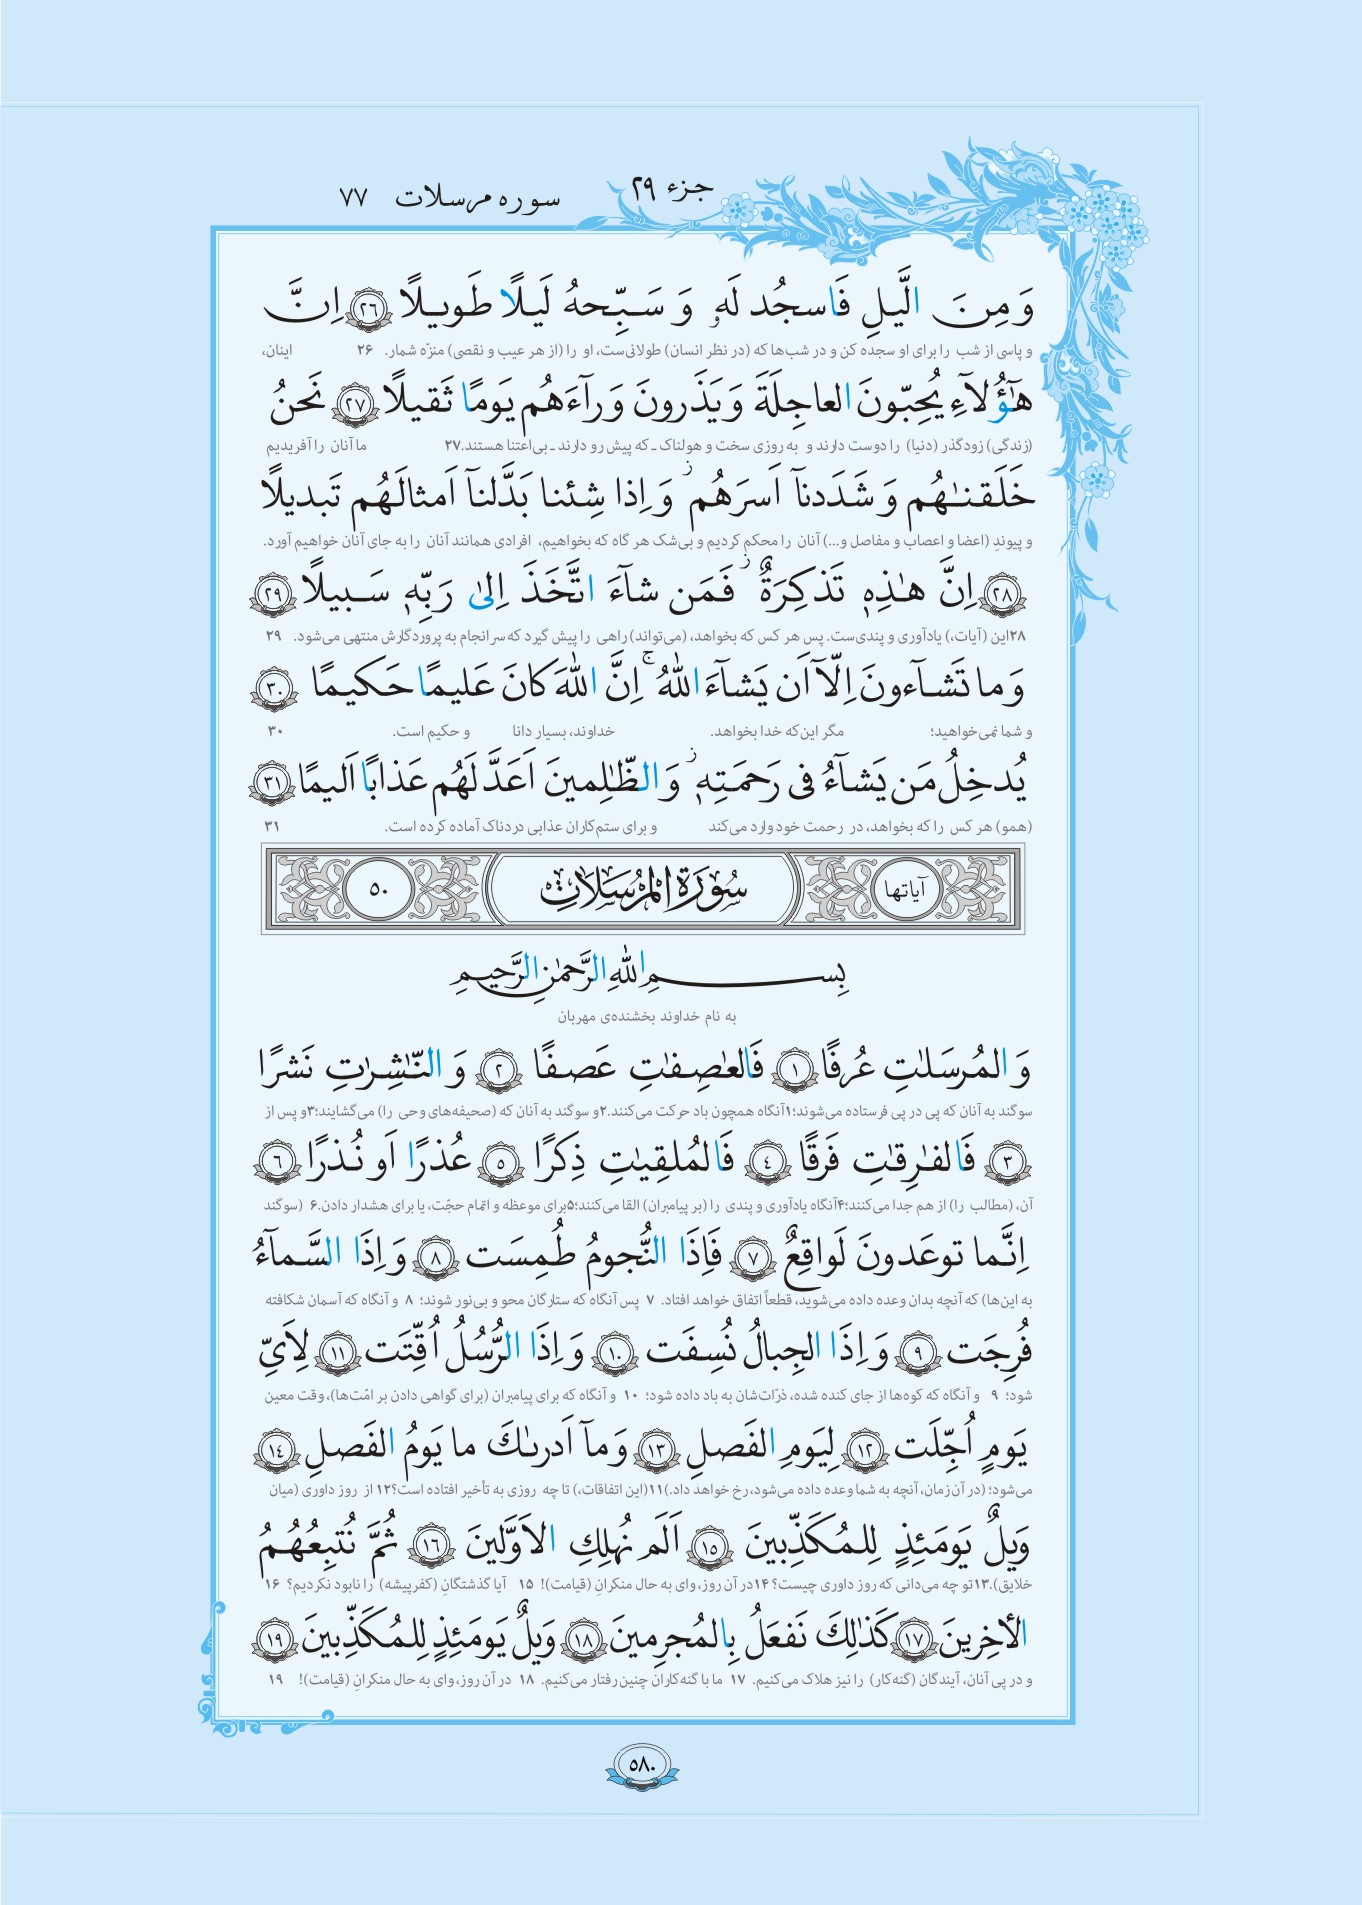 جزء ۲۹
سوره مرسلات ۷۷
وَ مِنَ الَّيلِ فَاسجُد لَهٗ وَ سَبِّحهُ لَيلًا طَويلًا ﴿٢٦﴾ اِنَّ
و پاسی از شب را برای او سجده کن و در شب‌ها که (در نظر انسان) طولانی‌ست، او را (از هر عیب و نقصی) منزّه شمار. ۲۶ اینان،
هٰٓؤُلآءِ يُحِبّونَ العاجِلَةَ وَ يَذَرونَ وَرآءَهُم يَومًا ثَقيلًا ﴿٢٧﴾ نَحنُ
(زندگی) زودگذر (دنیا) را دوست دارند و به روزی سخت و هولناک ـ که پیش رو دارند ـ بی‌اعتنا هستند.۲۷ ما آنان را آفریدیم
خَلَقنٰهُم وَ شَدَدنآ اَسرَهُم ۖ وَ اِذا شِئنا بَدَّلنآ اَمثالَهُم تَبديلًا
و پیوندِ (اعضا و اعصاب و مفاصل و...) آنان را محکم کردیم و بی‌شک هر گاه که بخواهیم، افرادی همانند آنان را به جای آنان خواهیم آورد.
﴿٢٨﴾ اِنَّ هٰذِهٖ تَذكِرَةٌ ۖ فَمَن شآءَ اتَّخَذَ اِلىٰ رَبِّهٖ سَبيلًا ﴿٢٩﴾
۲۸این (آیات،) یادآوری و پندی‌ست. پس هر کس که بخواهد، (می‌تواند) راهی را پیش گیرد که سرانجام به پروردگارش منتهی می‌شود. ۲۹
وَ ما تَشآءونَ اِلّآ اَن يَشآءَ اللّٰهُ ۚ اِنَّ اللّٰهَ كانَ عَليمًا حَكيمًا ﴿٣٠﴾
و شما نمی‌خواهید؛ مگر این‌که خدا بخواهد. خداوند، بسیار دانا و حکیم است. ۳۰
يُدخِلُ مَن يَشآءُ فى رَحمَتِهٖ ۖ وَ الظّٰلِمينَ اَعَدَّ لَهُم عَذابًا اَليمًا ﴿٣١﴾
(همو) هر کس را که بخواهد، در رحمت خود وارد می‌کند و برای ستم‌کاران عذابی دردناک آماده کرده است. ۳۱
آیاتها سُورَةُ المُرسَلات ٥٠
بِسمِ اللّٰهِ الرَّحمٰنِ الرَّحيمِ
به نام خداوند بخشنده‌ی مهربان
وَ المُرسَلاتِ عُرفًا ﴿١﴾ فَالعٰصِفٰتِ عَصفًا ﴿٢﴾ وَ النّٰشِرٰتِ نَشرًا
سوگند به آنان که پی در پی فرستاده می‌شوند؛۱آنگاه همچون باد حرکت می‌کنند.۲و سوگند به آنان که (صحیفه‌های وحی را) می‌گشایند؛۳و پس از
﴿٣﴾ فَالفٰرِقٰتِ فَرقًا ﴿٤﴾ فَالمُلقِيٰتِ ذِكرًا ﴿٥﴾ عُذرًا اَو نُذرًا ﴿٦﴾
آن، (مطالب را) از هم جدا می‌کنند؛۴آنگاه یادآوری و پندی را (بر پیامبران) القا می‌کنند؛۵برای موعظه و اتمام حجّت، یا برای هشدار دادن.۶ (سوگند
اِنَّما توعَدونَ لَواقِعٌ ﴿٧﴾ فَاِذَا النُّجومُ طُمِسَت ﴿٨﴾ وَ اِذَا السَّمآءُ
به این‌ها) که آنچه بدان وعده داده می‌شوید، قطعاً اتفاق خواهد افتاد. ۷ پس آنگاه که ستارگان محو و بی‌نور شوند؛ ۸ و آنگاه که آسمان شکافته
فُرِجَت ﴿٩﴾ وَ اِذَا الجِبالُ نُسِفَت ﴿١٠﴾ وَ اِذَا الرُّسُلُ اُقِّتَت ﴿١١﴾ لِاَىِّ
شود؛ ۹ و آنگاه که کوه‌ها از جای کنده شده، ذرّات‌شان به باد داده شود؛ ۱۰ و آنگاه که برای پیامبران (برای گواهی دادن بر امّت‌ها)، وقت معین
يَومٍ اُجِّلَت ﴿١٢﴾ لِيَومِ الفَصلِ ﴿١٣﴾ وَ مآ اَدرىٰكَ ما يَومُ الفَصلِ ﴿١٤﴾
می‌شود؛ (در آن زمان، آنچه به شما وعده داده می‌شود، رخ خواهد داد.)۱۱(این اتفاقات،) تا چه روزی به تأخیر افتاده است؟۱۲ از روز داوری (میان
وَيلٌ يَومَئِذٍ لِلمُكَذِّبينَ ﴿١٥﴾ اَلَم نُهلِكِ الاَوَّلينَ ﴿١٦﴾ ثُمَّ نُتبِعُهُمُ
خلایق).۱۳تو چه می‌دانی که روز داوری چیست؟ ۱۴در آن روز، وای به حال منکرانِ (قیامت)! ۱۵ آیا گذشتگانِ (کفرپیشه) را نابود نکردیم؟ ۱۶
الأخِرينَ ﴿١٧﴾ كَذٰلِكَ نَفعَلُ بِالمُجرِمينَ ﴿١٨﴾ وَيلٌ يَومَئِذٍ لِلمُكَذِّبينَ ﴿١٩﴾
و در پی آنان، آیندگان (گنه‌کار) را نیز هلاک می‌کنیم. ۱۷ ما با گنه‌کاران چنین رفتار می‌کنیم. ۱۸ در آن روز، وای به حال منکرانِ (قیامت)! ۱۹
٥٨٠